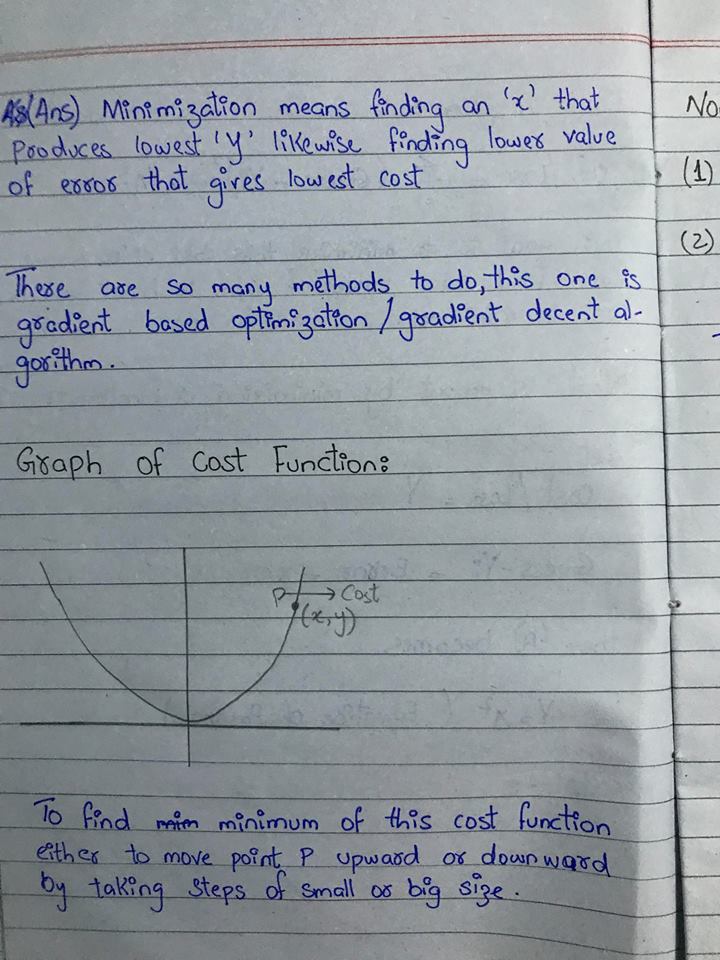 (Ans) Minimization means finding an 'x' that
produces lowest 'Y' likewise finding lower value
of error that gives lowest cost
There are so many methods to do, this one is
gradient based optimization / gradient decent al-
gorithm.
Graph of Cost Function:
P → Cost
(x, y)
To find minimum of this cost function
either to move point P upward or downward
by taking steps of small or big size.
No
(1)
(2)